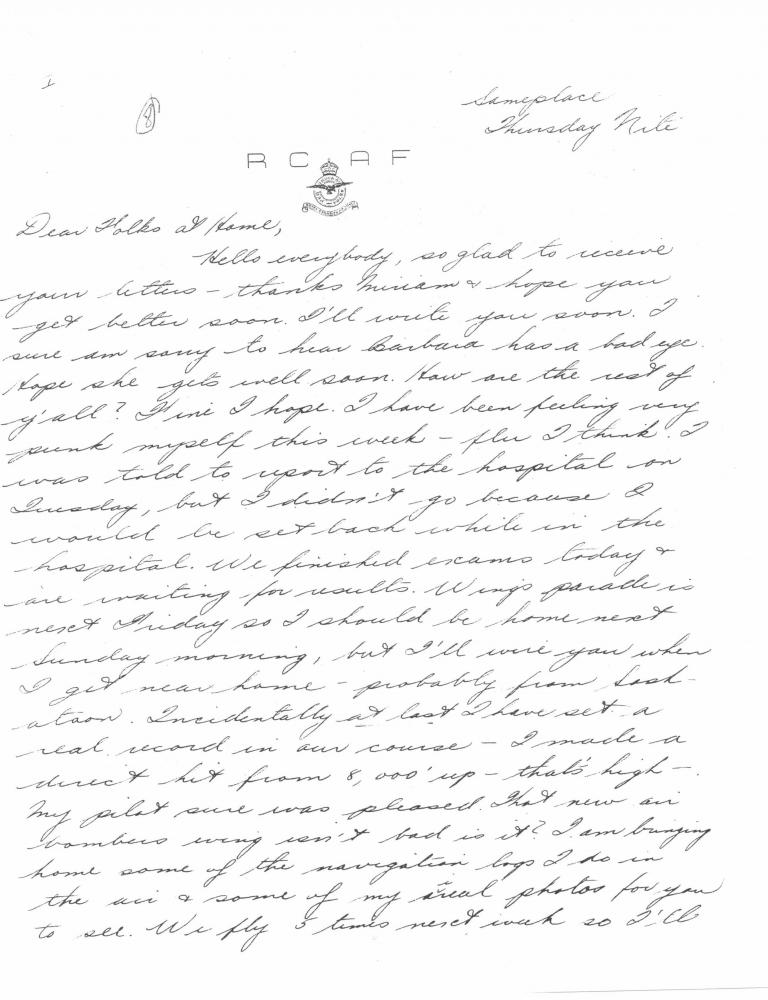 1
8
Sameplace
Thursday Nite
R C A F
Dear Folks at Home,
Hello everybody, so glad to receive
your letters – thanks Miriam & hope you
get better soon. I'll write you soon. I
sure am sorry to hear Barbara has a bad eye.
Hope she gets well soon. How are the rest of
y'all? Fine I hope. I have been feeling very
punk myself this week – flu I think. I
was told to report to the hospital on
Tuesday, but I didn't go because I
would be set back while in the
hospital. We finished exams today &
are waiting for results. Wings parade is
next Friday so I should be home next
Sunday morning, but I'll wire you when
I get near home – probably from Sask-
atoon. Incidentally at last I have set a
real record in our course – I made a
direct hit from 8,000' up – that's high –
My pilot sure was pleased. That new air
bombers wing isn't bad is it? I am bringing
home some of the navigation logs I do in
the air & some of my aerial photos for you
to see. We fly 5 times next week so I'll